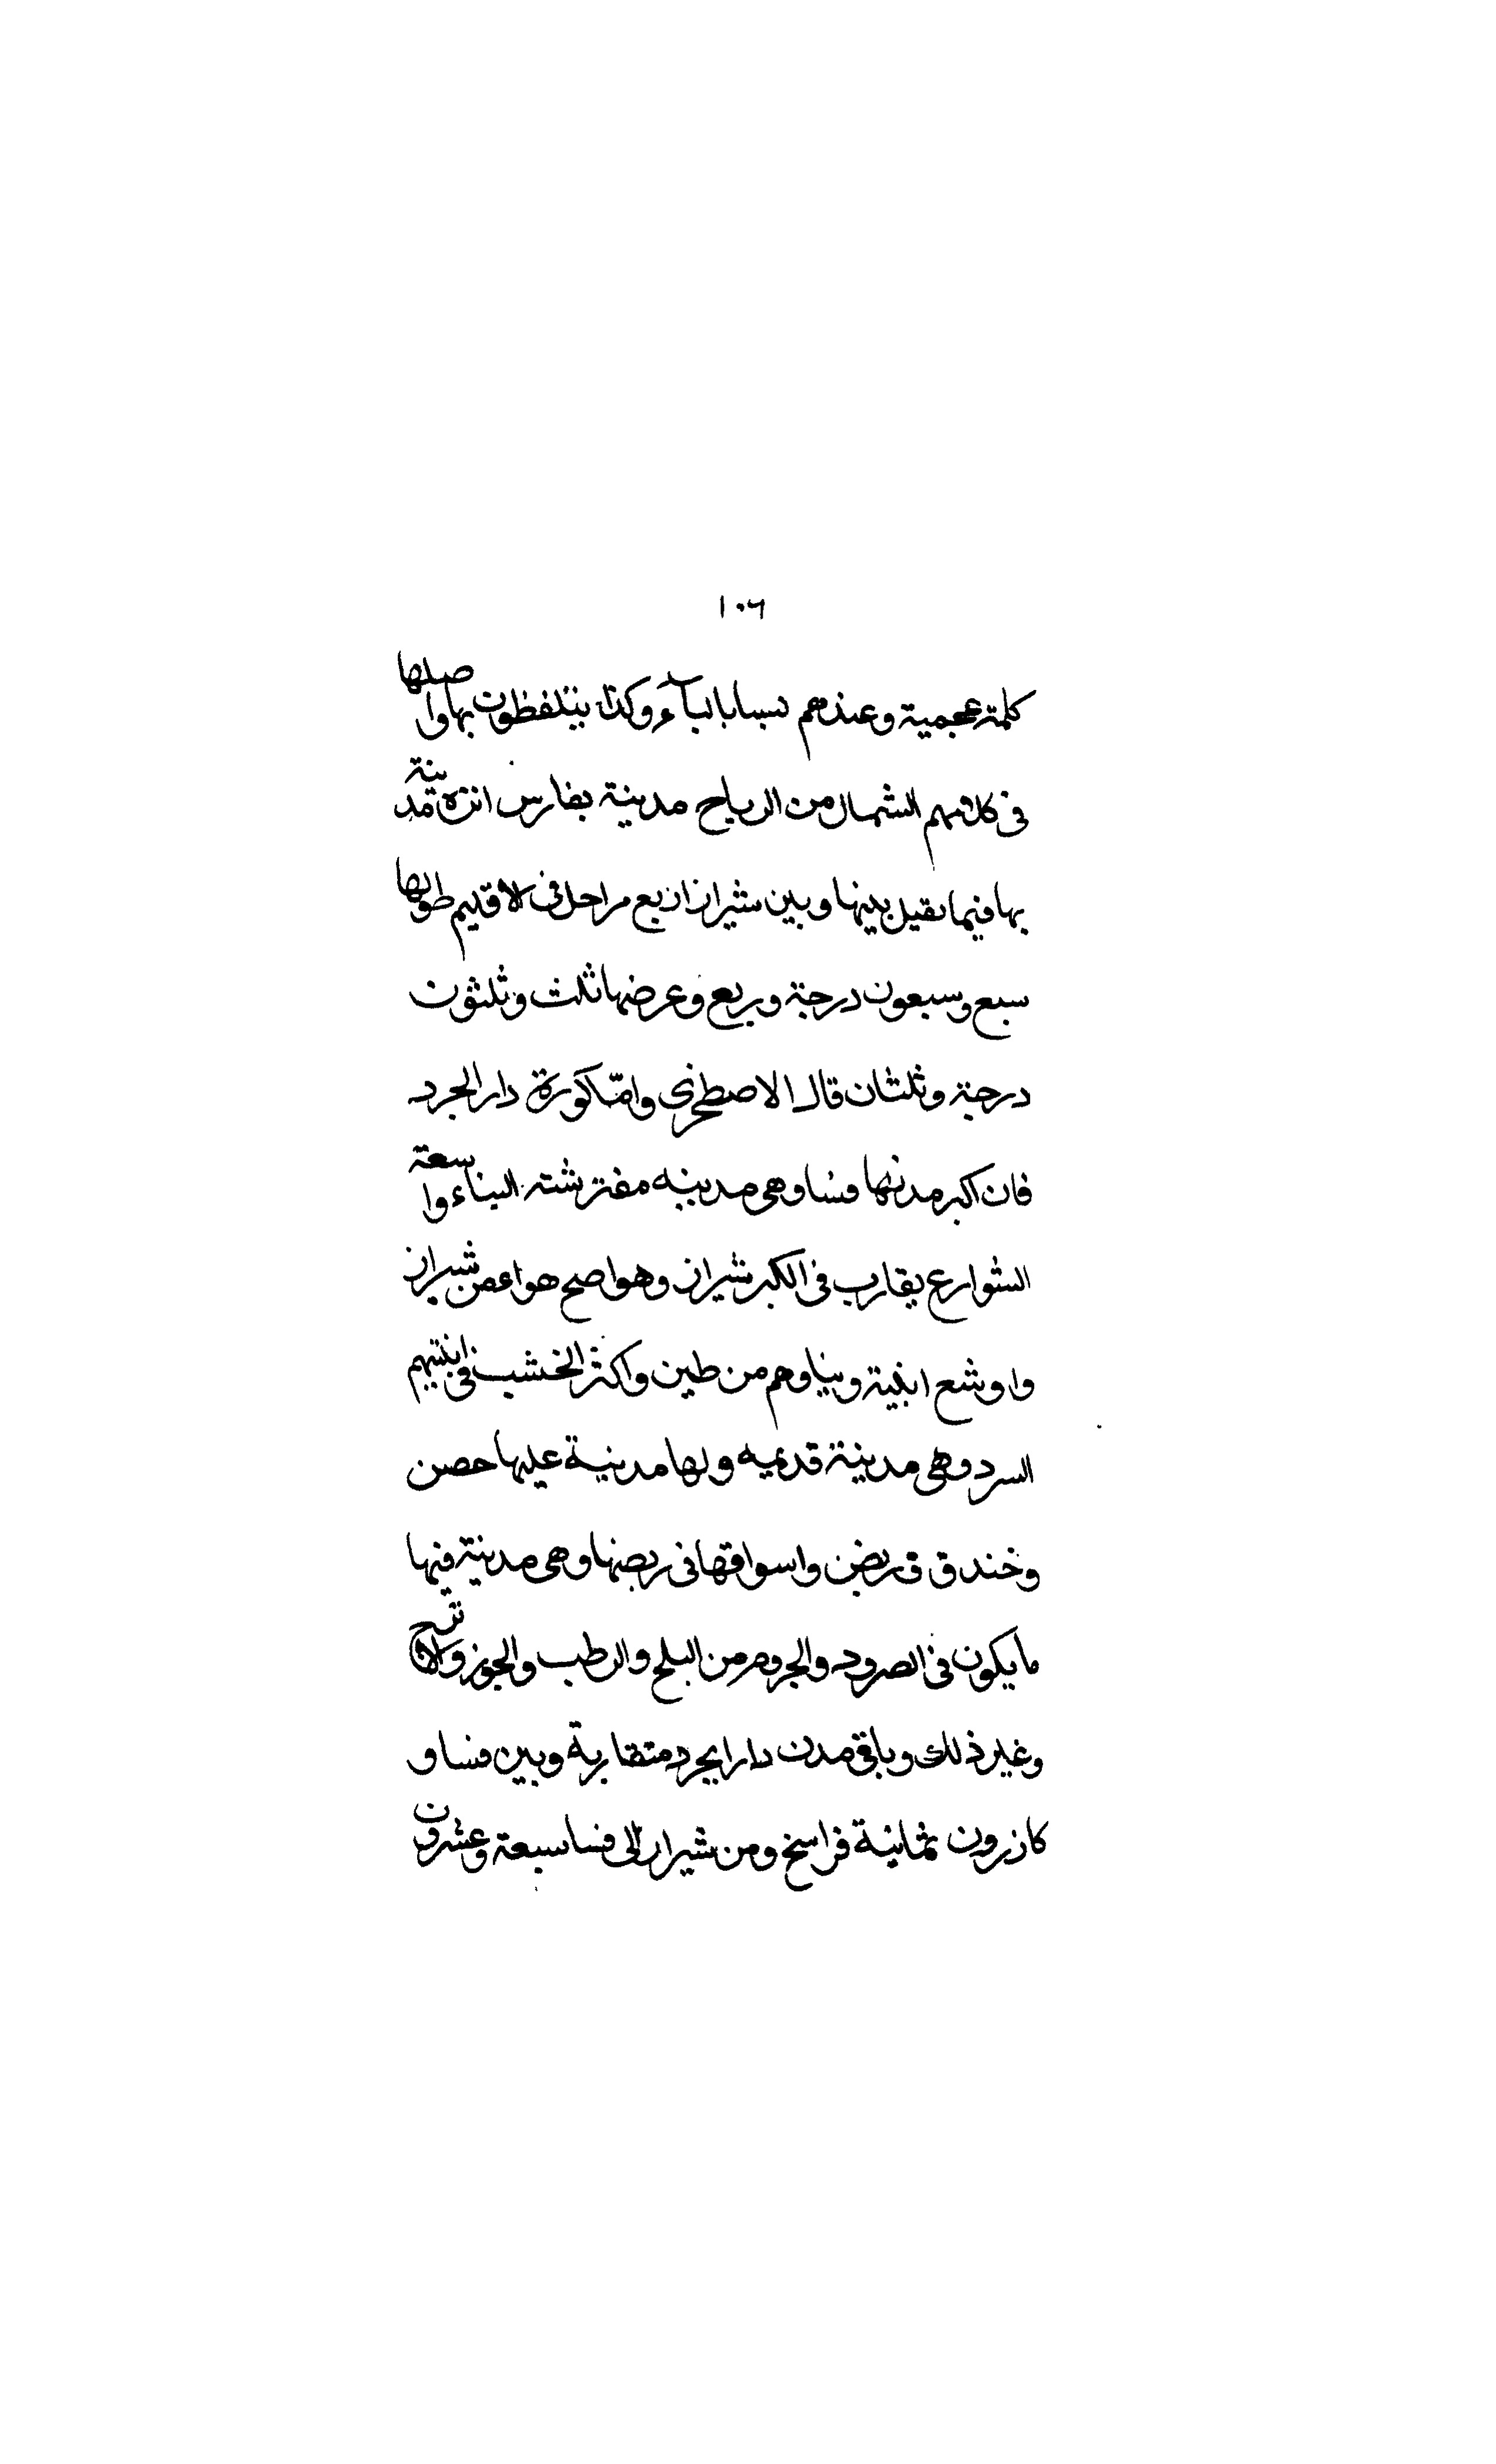 ١٠٦
كلمة عجمية وعندهم بسا بالباء وكذا يتلفظون بها واصلها
فى كلامهم الشمال من الرياح مدينة بفارس انزه مدينة
بها فيما قيل بينها وبين شيراز اربع مراحل فى الاقليم طولها
سبع وسبعون درجة وربع وعرضها ثلث وثلثون
درجة وثلثان قال الاصطخرى وامّا كورة دار ابجرد
فان اكبر مدنها فسا وهى مدينه مفترشته البناء واسعة
الشوارع يقارب فى الكبر شيراز وهو اصح هواء من شيراز
واوشع ابنية وبناوهم من طين واكثر الخشب فى ابنيتهم
السرد وهى مدينة قديمه ولها مدينة عليها حصن
وخندق وربض واسواقها فى ربضها وهى مدينة فيها
ما يكون فى الصرود والجروم من البلح والرطب والجوز والاترج
وغير ذلك وباقى مدن دارابجرد متقاربة وبين فسا و
كازرون ثمانية فراسخ ومن شيراز الى فسا سبعة وعشرون